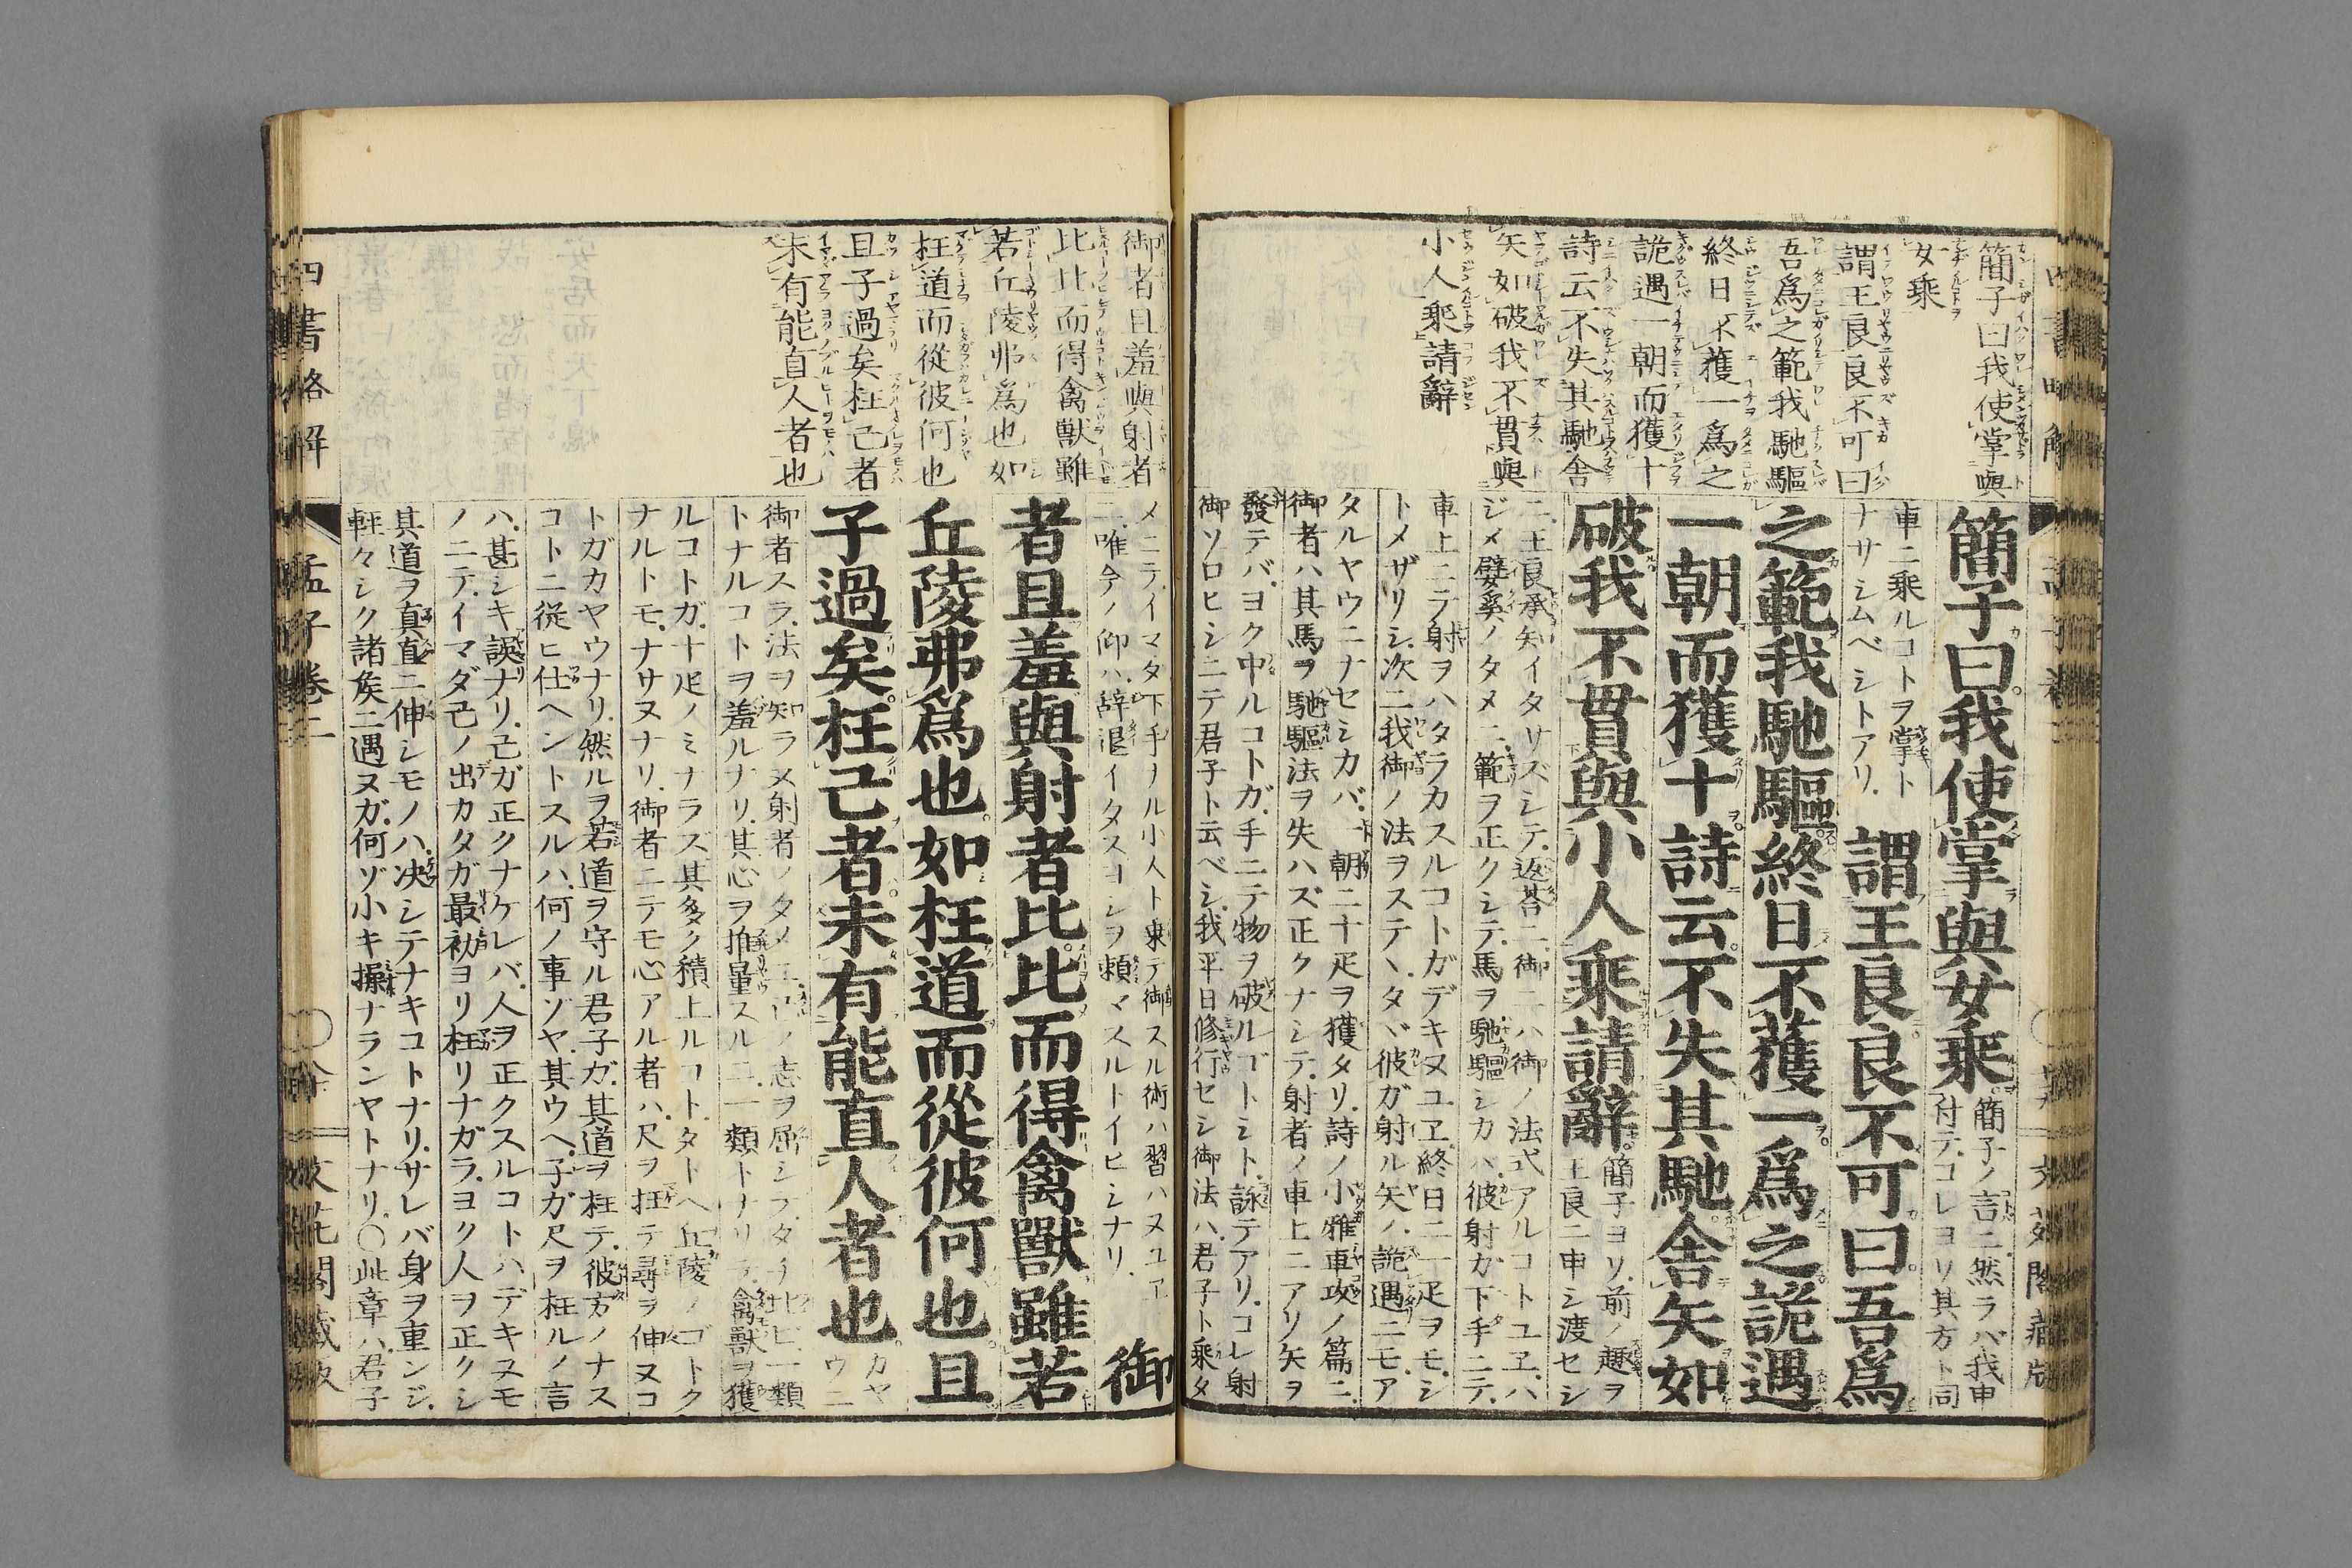 簡子曰我使掌與
女乘
謂王良良不可曰
吾爲之範我馳驅
終日不獲一爲之
詭遇一朝而獲十
詩云不失其馳舍
矢如破我不貫與
小人乘請辭
簡子曰我使掌與女乘
簡子ノ言ニ然ラバ我申
付テコレヨリ其方ト同
車ニ乘ルコトヲ掌ト
ナサシムベシトアリ
謂王良良不可曰吾爲
之範我馳驅終日不獲一爲之詭遇
一朝而獲十詩云不失其馳舍矢如
破我不貫與小人乘請辭
簡子ヨリ前ノ趣ヲ
王良ニ申シ渡セシ
ニ王良承知イタサズシテ返荅ニ御ニハ御ノ法式アルコトユヱハ
ジメ嬖奚ノタメニ範ヲ正クシテ馬ヲ馳驅シカバ彼射カ下手ニテ
車上ニテ射ヲハタラカスルコトガデキヌユヱ終日ニ一疋ヲモシ
トメザリシ次ニ我御ノ法ヲステヽタヾ彼ガ射ル矢ノ詭遇ニモア
タルヤウニナセシカバ一朝ニ十疋ヲ獲タリ詩ノ小雅車攻ノ篇ニ
御者ハ其馬ヲ馳驅法ヲ失ハズ正クナシテ射者ノ車上ニアリ矢ヲ
發テバヨク中ルコトガ手ニテ物ヲ破ルゴトシト詠テアリコレ射
御ソロヒシニテ君子ト云ベシ我平日修行セシ御法ハ君子ト乘タ
御者且羞與射者
比比而得禽獸雖
若丘陵弗爲也如
枉道而從彼何也
且子過矣枉己者
未有能直人者也
メニテイマタ下手ナル小人ト乘テ御スル術ハ習ハヌユヱ
ニ唯今ノ仰ハ辞退イタスヨシヲ頼マスルトイヒシナリ
御
者且羞與射者比比而得禽獸雖若
丘陵弗爲也如枉道而從彼何也且
子過矣枉己者未有能直人者也
カヤ
ウニ
御者スラ法ヲ知ラヌ射者ノタメニ己ノ志ヲ屈シフタチ比ヒ一類
トナルコトヲ羞ルナリ其心ヲ推量スルニ一類トナリテ禽獸ヲ獲
ルコトガ十疋ノミナラズ其多ク積上ルコトタトヘ丘陵ノゴトク
ナルトモナサヌナリ御者ニテモ心アル者ハ尺ヲ枉テ尋ヲ伸ヌコ
トガカヤウナリ然ルヲ若道ヲ守ル君子ガ其道ヲ枉テ彼方ノナス
コトニ從ヒ仕ヘントスルハ何ノ事ゾヤ其ウヘ子ガ尺ヲ枉ルノ言
ハ甚シキ誤ナリ己ガ正クナケレバ人ヲ正クスルコトハデキヌモ
ノニテイマダ己ノ出カタガ最初ヨリ枉リナガラヨク人ヲ正クシ
其道ヲ真直ニ伸シモノハ决シテナキコトナリサレバ身ヲ重ンジ
軽々シク諸矦ニ遇ヌガ何ゾ小キ操ナランヤトナリ〇此章ハ君子
四書略解
孟子卷二